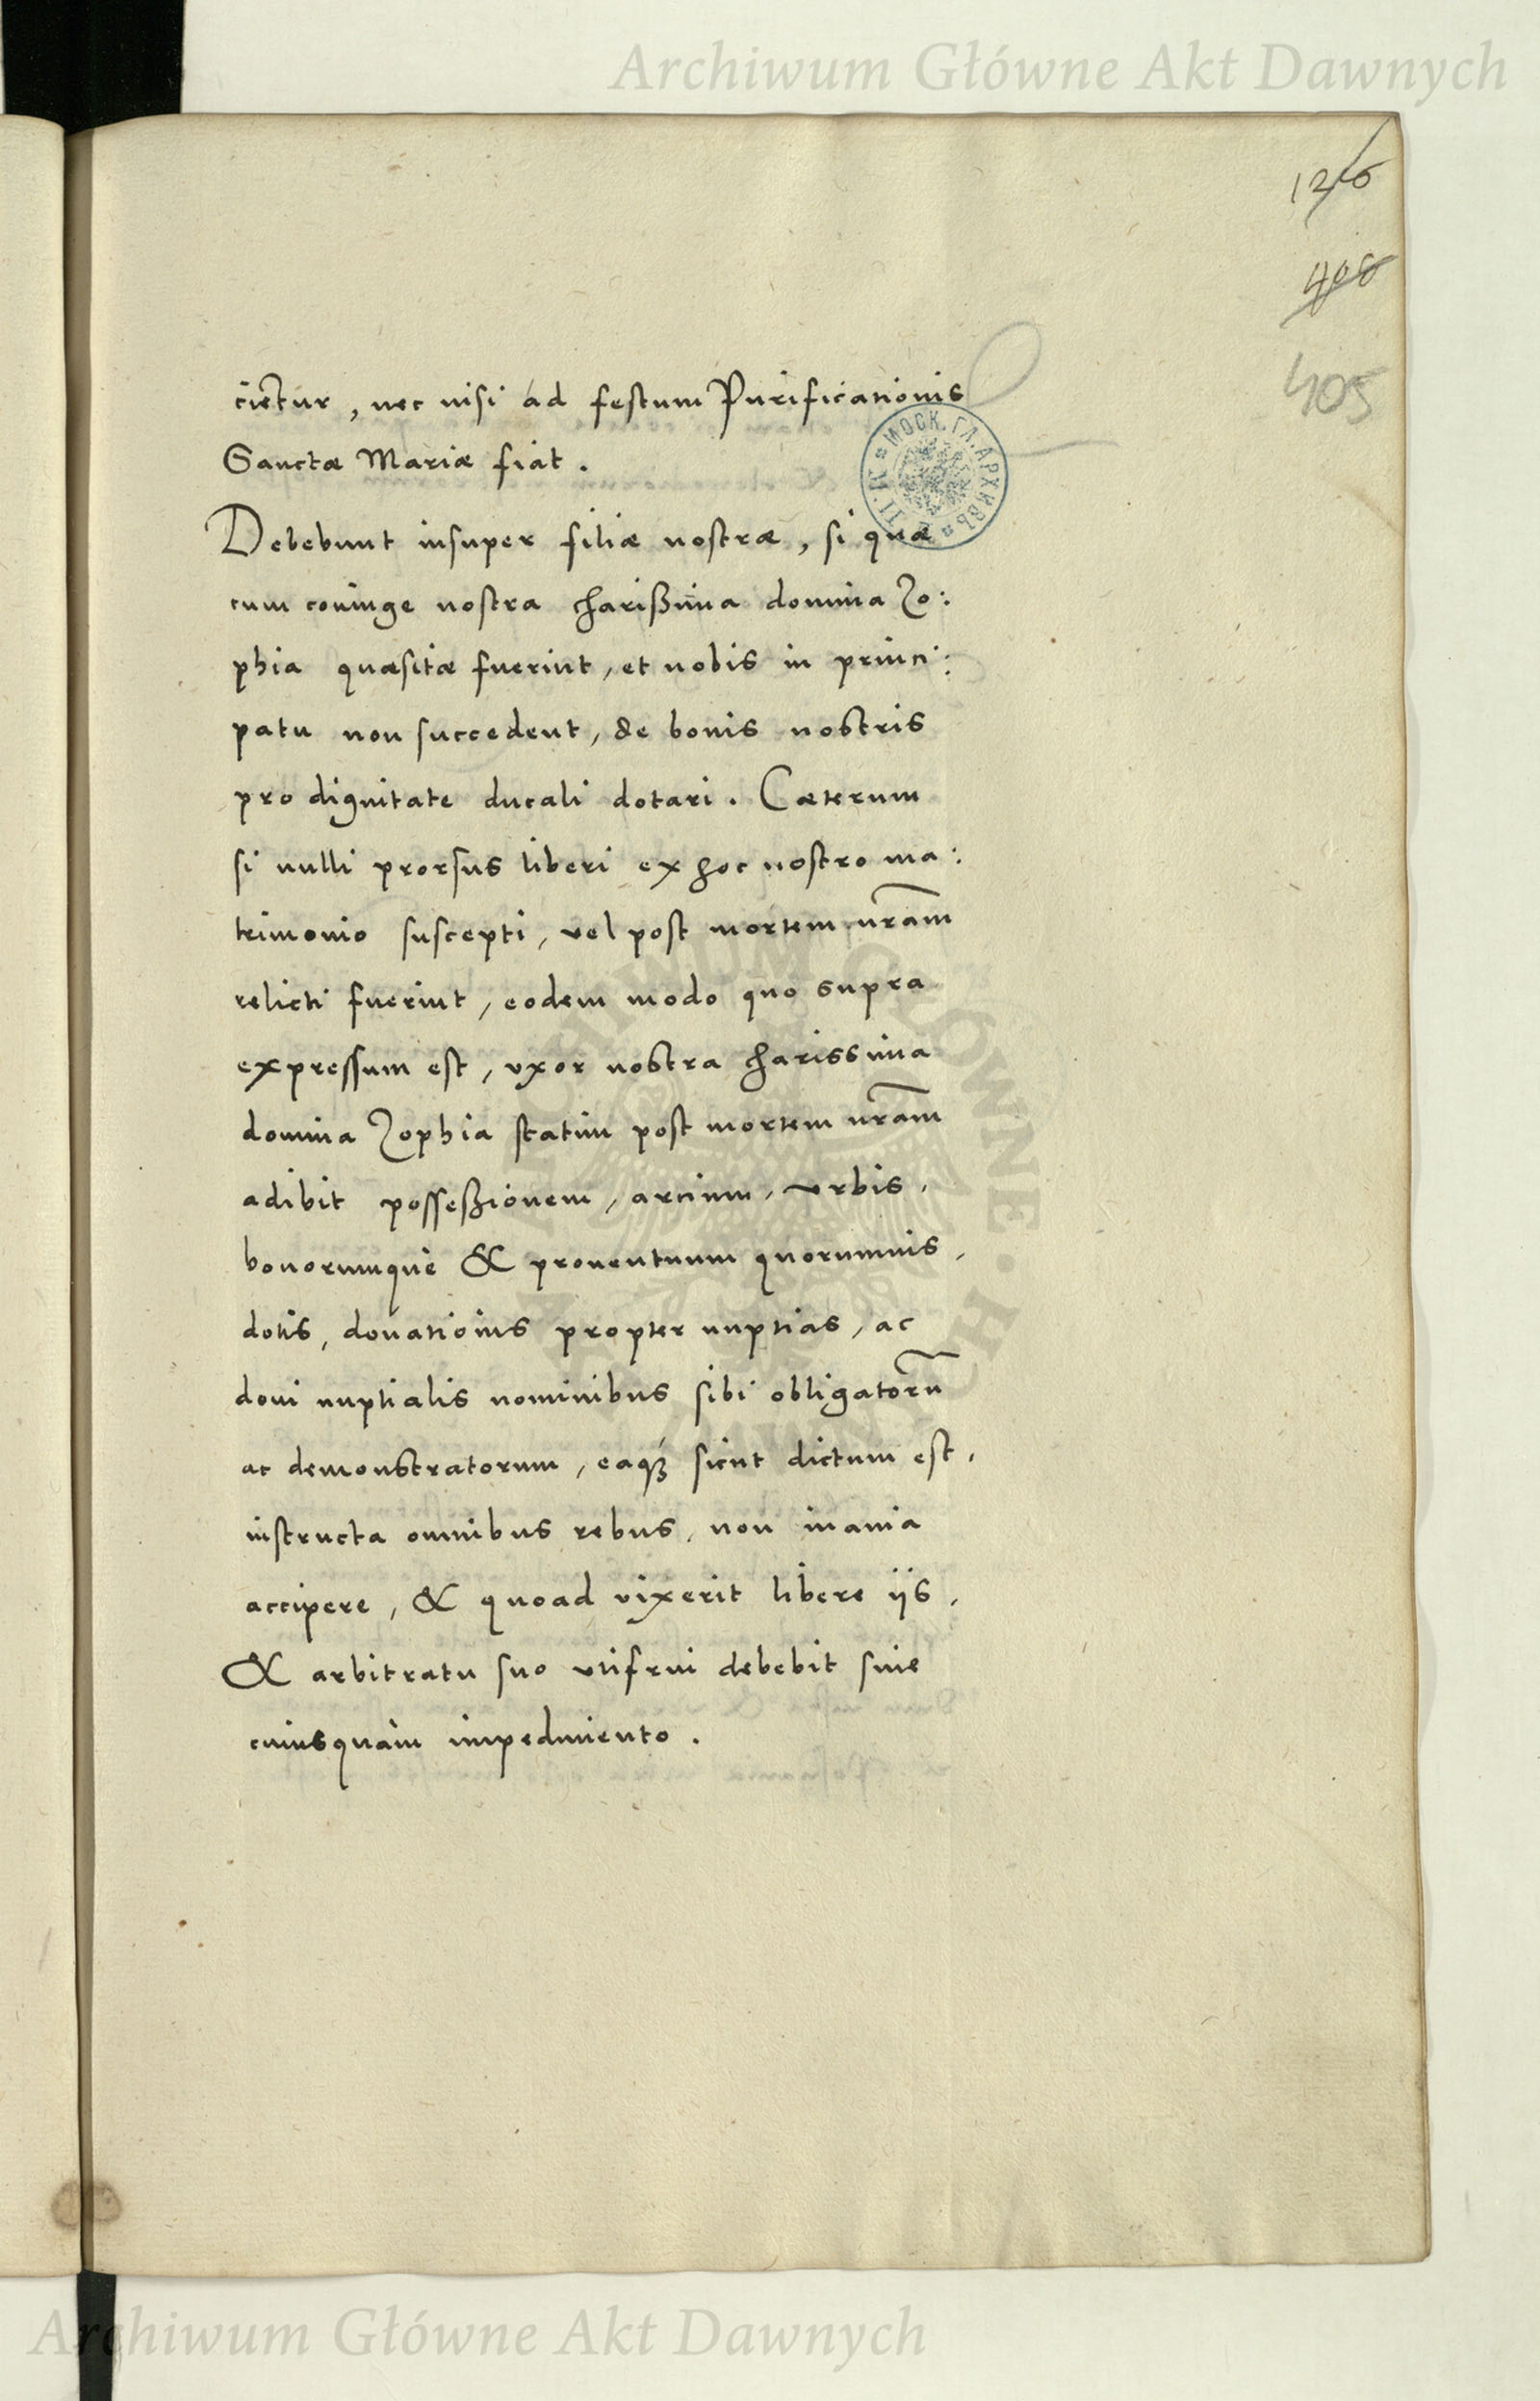 Archiwum Główne Akt Dawnych
126
408
405
cietur, nec nisi ad festum Purificationis
Sanctæ Mariæ fiat.
МОСК. ГЛ. АРХИВЪ
Debebunt insuper filiæ nostræ, si quæ
cum coniuge nostra charißima domina Zo:
phia quæsitæ fuerint, et nobis in princi:
patu non succedent, de bonis nostris
pro dignitate ducali dotari. Cæterum
si nulli prorsus liberi ex hoc nostro ma:
trimonio suscepti, vel post mortem nr̃am
relicti fuerint, eodem modo quo supra
expressum est, vxor nostra charissima
domina Zophia statim post mortem nr̃am
adibit posseßionem, arcium, vrbis,
bonorumquè & prouentuum quorumuis,
dotis, donationis propter nuptias, ac
doni nuptialis nominibus sibi obligatorũ
ac demonstratorum, eaqꝫ sicut dictum est,
instructa omnibus rebus, non inania
accipere, & quoad vixerit libere ijs,
& arbitratu suo vtifrui debebit sine
cuiusquàm impedimento.
Archiwum Główne Akt Dawnych